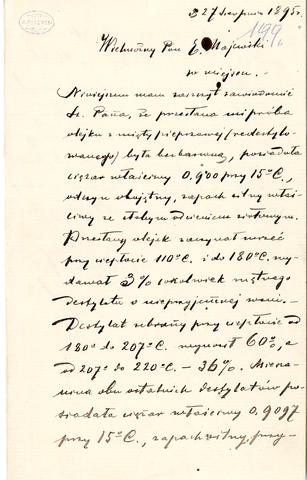 d 27 Sierpnia 1895 r.
199
Wielmożny Pan E. Majewski
w miejscu.
Niniejszem mam zaszczyt zawiadomić
Sz. Pana, że przesłana mi próba
olejku z mięty pieprzowej (redestylo-
wanego) była bezbarwną, posiadała
ciężar właściwy 0.900 przy 15°C.,
odczyn obojętny, zapach silny właś-
ciwy ze słabym odcieniem ziołowym.
Przesłany olejek zaczynał wrzeć
przy cieple 110°C. i do 180°C. wy-
dawał 3% cokolwiek mętnego
destylatu o nieprzyjemnej woni.
Destylat zebrany przy cieple od
180° do 207°C. wynosił 60%, a
od 207° do 220°C. — 36%. Miesza-
nina obu ostatnich destylatów po-
siadała ciężar właściwy 0.9097
przy 15°C., zapach silny, przy-